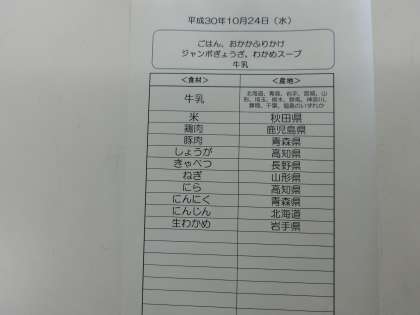 平成30年10月24日（水）
ごはん、おかかふりかけ
ジャンボぎょうざ、わかめスープ
牛乳
＜食材＞ ＜産地＞
牛乳 北海道、青森、岩手、宮城、山
形、埼玉、栃木、群馬、神奈川、
千葉、福島のいずれか
米 秋田県
鶏肉 鹿児島県
豚肉 青森県
しょうが 高知県
きゃべつ 長野県
ねぎ 山形県
にら 高知県
にんにく 青森県
にんじん 北海道
生わかめ 岩手県